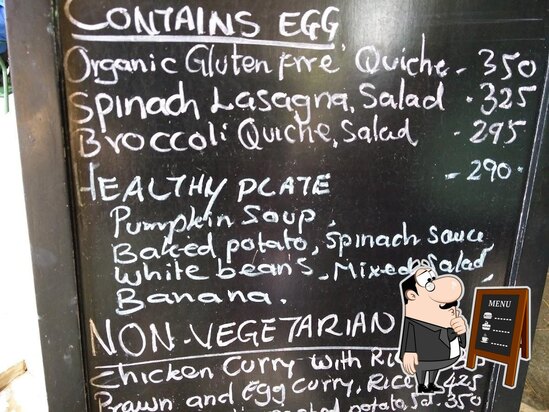 CONTAINS EGG
Organic Gluten free Quiche - 350
Spinach Lasagna, Salad - 325
Broccoli Quiche, Salad - 295
HEALTHY PLATE - 290
Pumpkin Soup,
Baked potato, Spinach sauce
white beans, Mixed Salad
Banana.
NON-VEGETARIAN
Chicken Curry with
Prawn and Egg Curry, Rice 425
potato, Sal. 350
MENU